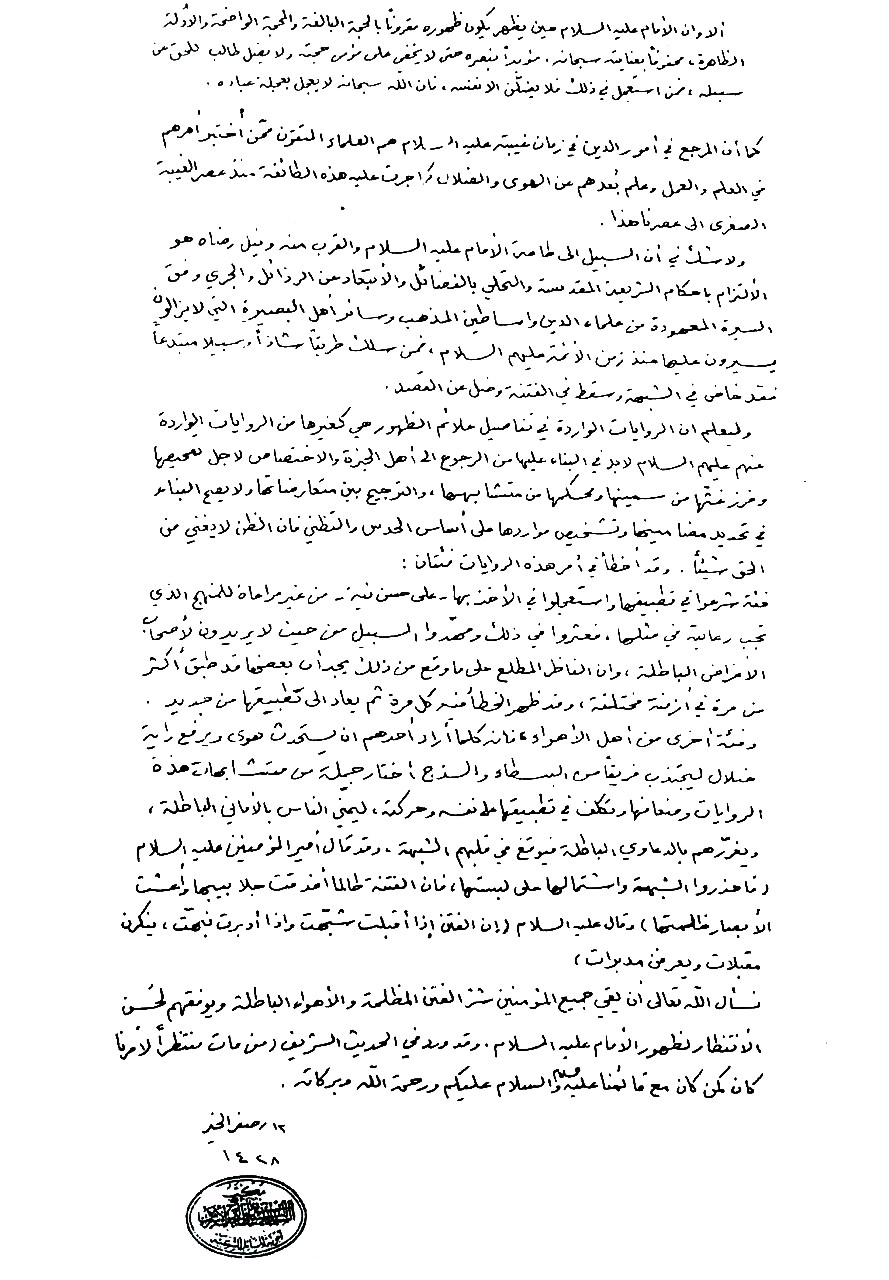 ألا وان الأمام عليه السلام حين يظهر يكون ظهوره مقروناً بالحجة البالغة والمحجة الواضحة والأدلة
الظاهرة، محفوفاً بعنايته سبحانه، مؤيداً بنصره حتى لا يخفى على مؤمن حجته ولا يضل طالب للحق عن
سبيله، فمن استعجل في ذلك فلا يضلّن الا نفسه، فان الله سبحانه لا يعجل بعجلة عباده.
كما أن المرجع في أمور الدين في زمان غيبته عليه السلام هم العلماء المتقون ممّن أُختبر أمرهم
في العلم والعمل وعلم بُعدهم عن الهوى والضلال كما جرت عليه هذه الطائفة منذ عصر الغيبة
الصغرى الى عصرنا هذا.
ولا شك في أن السبيل الى طاعة الأمام عليه السلام والقرب منه ونيل رضاه هو
الألتزام باحكام الشريعة المقدسة والتحلي بالفضائل والأبتعاد عن الرذائل والجري وفق
السيرة المعهودة من علماء الدين واساطين المذهب وسائر أهل البصيرة التي لا يزالون
يسيرون عليها منذ زمن الأئمة عليهم السلام، فمن سلك طريقاً شاذاً وسبيلا مبتدعاً
فقد خاض في الشبهة وسقط في الفتنة وضل عن القصد.
وليعلم ان الروايات الواردة في تفاصيل علائم الظهور هي كغيرها من الروايات الواردة
عنهم عليهم السلام لابد في البناء عليها من الرجوع الى أهل الخبرة والاختصاص لاجل تمحيصها
وفرز غثّها من سمينها ومحكمها من متشابهها، والترجيح بين متعارضاتها ولا يصح البناء
في تحديد مضامينها وتشخيص مواردها على أساس الحدس والتظني فان الظن لا يغني من
الحق شيئاً. وقد أخطأ في أمر هذه الروايات فئتان:
فئة شرعوا في تطبيقها واستعجلوا في الأخذ بها - على حسن نية - من غير مراعاة للمنهج الذي
تجب رعايته في مثلها، فعثروا في ذلك ومهّدوا السبيل من حيث لا يريدون لأصحاب
الاغراض الباطلة، وان الناظر المطلع على ما وقع من ذلك يجد أن بعضها قد طبق أكثر
من مرة في أزمنة مختلفة، وقد ظهر الخطأ فيه كل مرة ثم يعاد الى تطبيقها من جديد.
وفئة أخرى من أهل الأهواء، فانه كلما أراد أحدهم ان يستحدث هوى ويرفع راية
ضلال ليجتذب فريقاً من البسطاء والسذج أختار جملة من متشابهات هذه
الروايات وضعافها وتكلف في تطبيقها على نفسه وحركته، ليمنّي الناس بالأماني الباطلة،
ويغرّرهم بالدعاوي الباطلة فيوقع في قلبهم الشبهة، وقد قال أمير المؤمنين عليه السلام
(فاحذروا الشبهة واشتمالها على لبستها، فان الفتنة طالما أغدقت جلابيبها وأعشت
الأبصار ظلمتها) وقال عليه السلام (إن الفتن إذا أقبلت شبّهت واذا أدبرت نبّهت، ينكرن
مقبلات ويعرفن مدبرات)
نسأل الله تعالى أن يقي جميع المؤمنين شرّ الفتن المظلمة والأهواء الباطلة ويوفقهم لحُسن
الأنتظار لظهور الأمام عليه السلام. وقد ورد في الحديث الشريف (من مات منتظراً لأمرنا
كان كمن كان مع قائمنا عليه السلام) والسلام عليكم ورحمة الله وبركاته.
١٢/صفر الخير
١٤٢٨